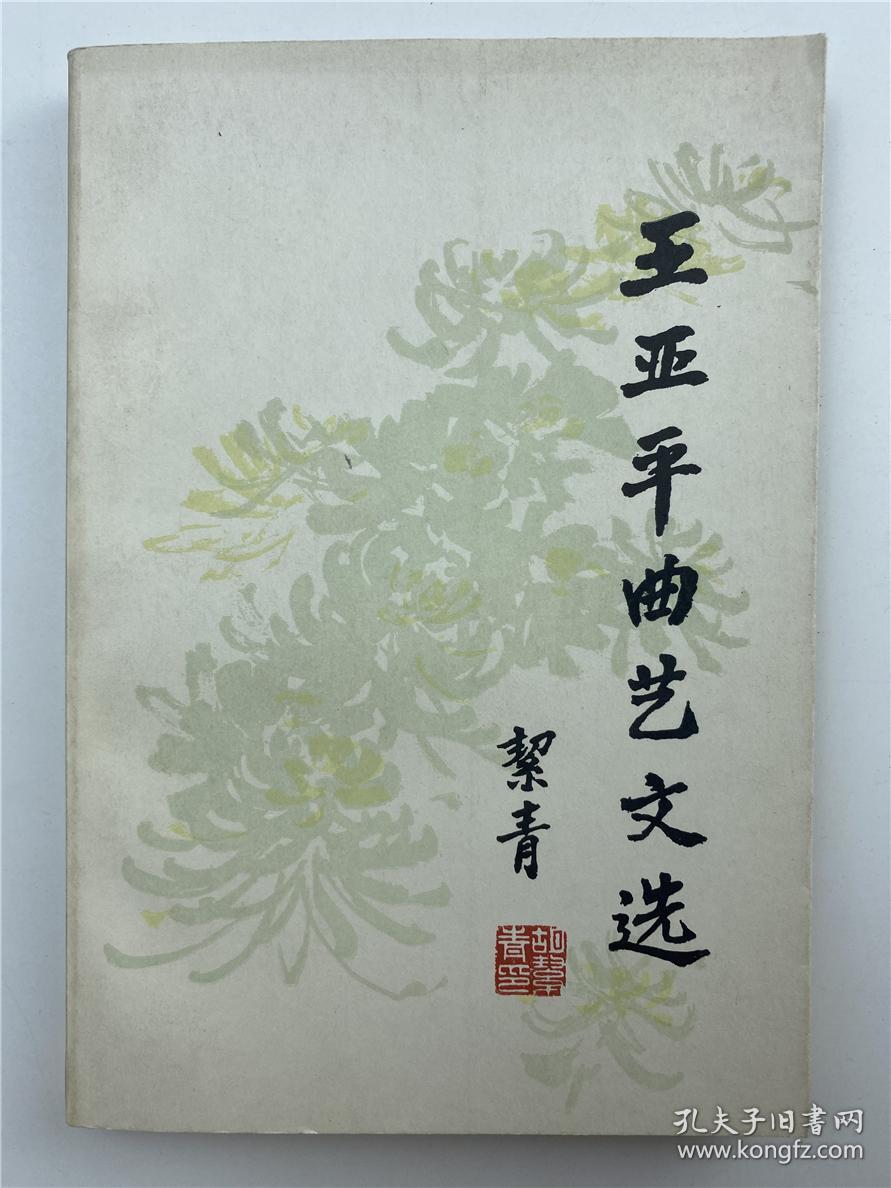 王亚平曲艺文选
絜青
胡絜青印
孔夫子旧书网
www.kongfz.com